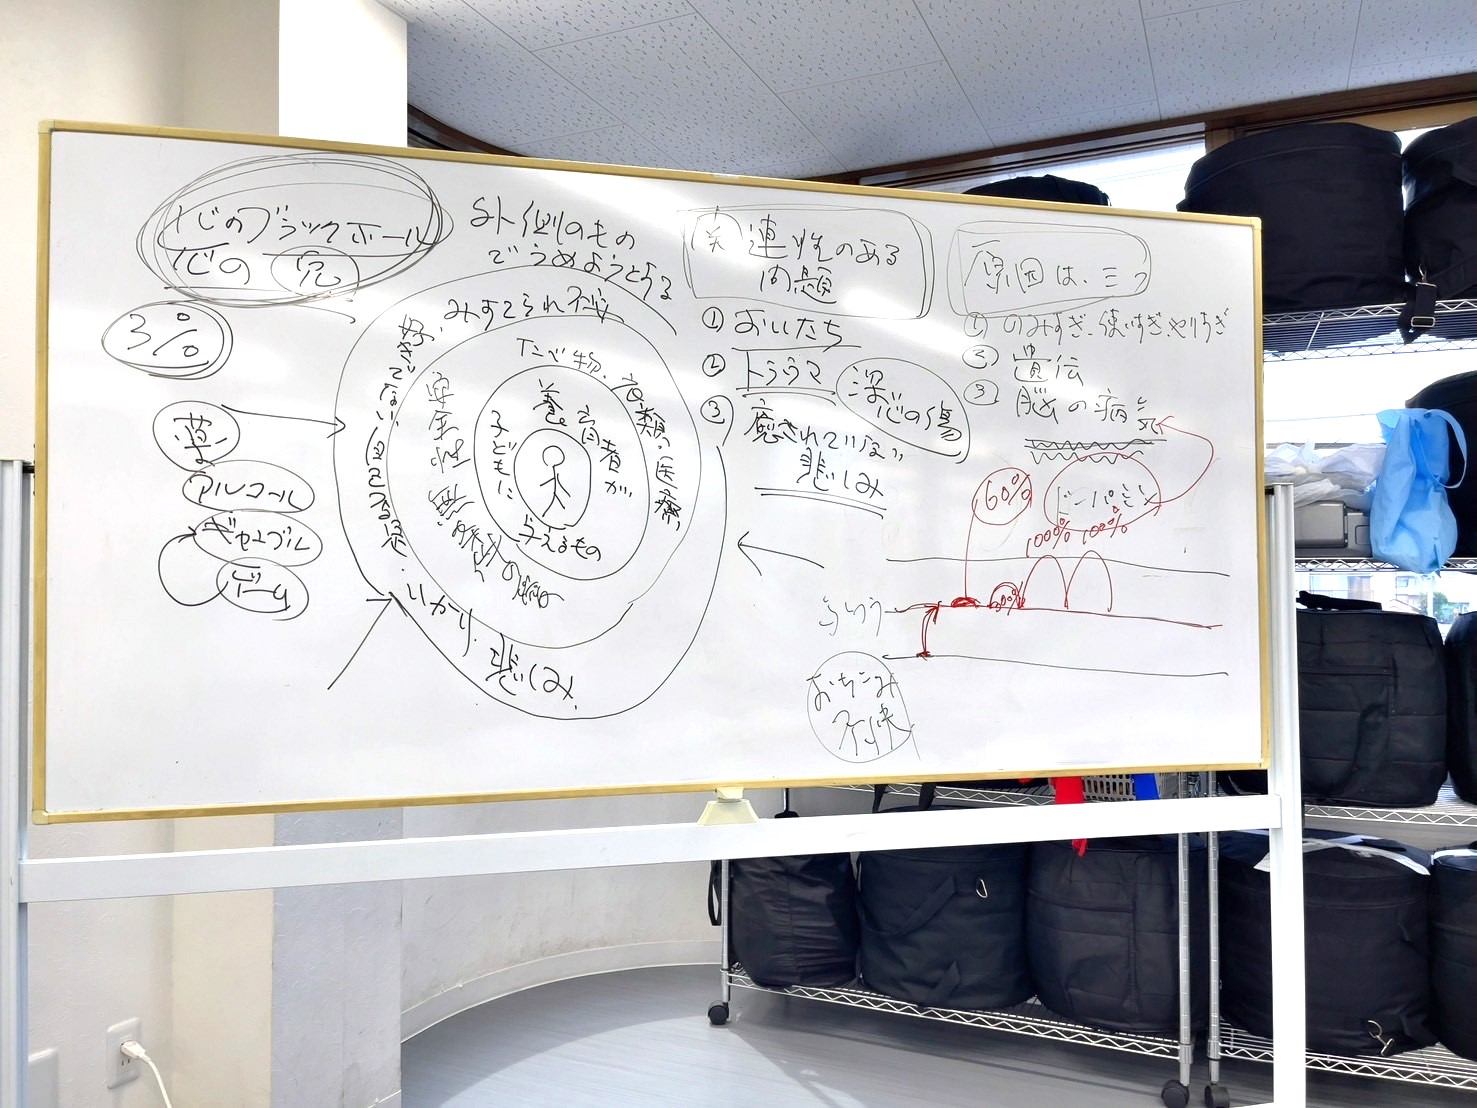 心のブラックホール
心の穴
3%
薬
アルコール
ギャンブル
ゲーム
外側のもの
でうめようとする
みすてられ不安
好きでない
いかり、悲しみ
たべ物、衣類、医療、
安全性
養育者が
子どもに
与えるもの
関連性のある
問題
① おいたち
② トラウマ
深い心の傷
③ 癒されていない
悲しみ
原因は、三つ
① のみすぎ、使いすぎ、やりすぎ
② 遺伝
③ 脳の病気
60%
ドーパミン
100% 100%
30%
ふつう
おちこみ
不快